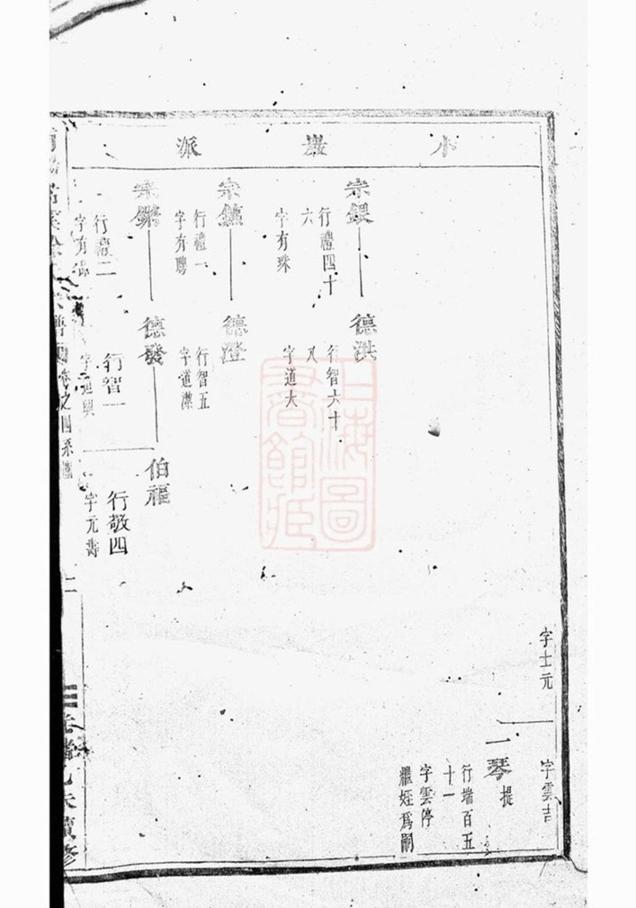 小巖派
字士元
字雲吉
一琴
提
行瑞百五
十一
字雲停
繼姪爲嗣
宗鋃
行禮四十
六
字有珠
德洪
行智六十
八
字道大
宗鑣
行禮一
字有聘
德澄
行智五
字道潔
宗
行禮二
字有
德發
行智一
字道興
伯福
行敬四
字元壽
卷之四系圖
上海圖書館藏